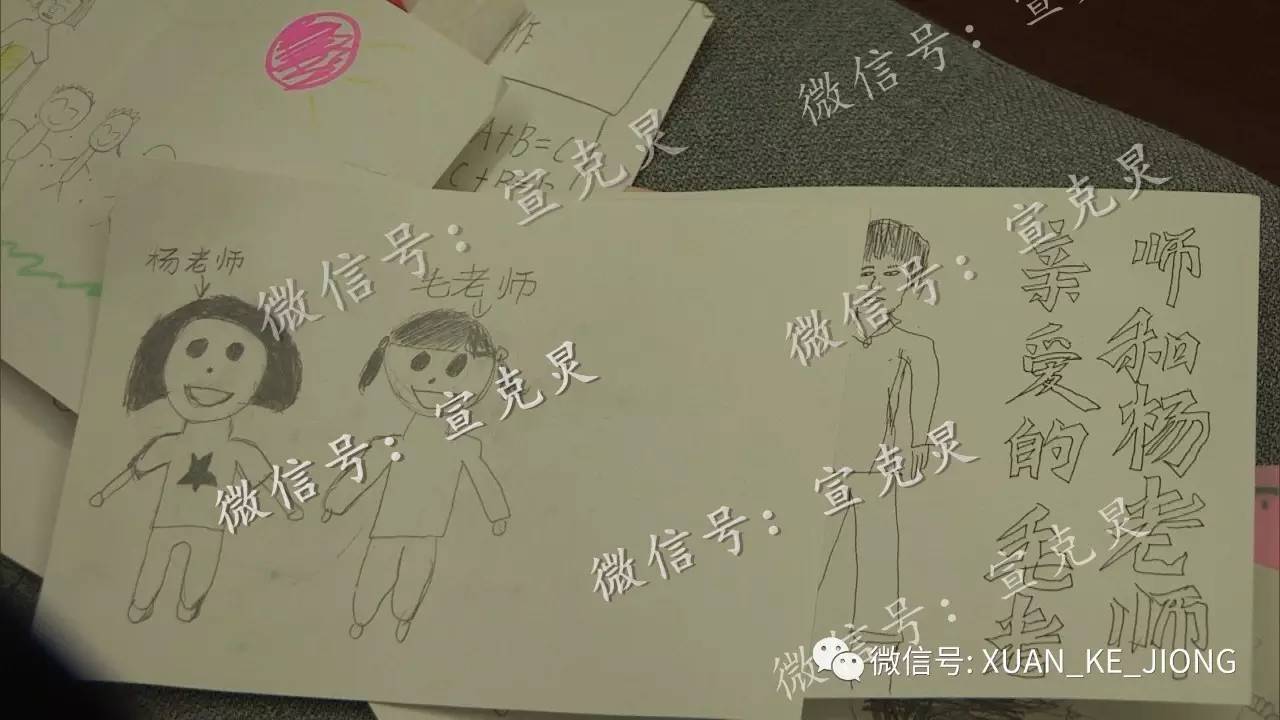 作
A+B=C
微信号：宣
微信号：宣克炅
微信号：宣克炅
杨老师
毛老师
亲爱的毛老
师和杨老师
微信号：宣克炅
微信号：宣克炅
微信号：宣克炅
微信号: XUAN_KE_JIONG